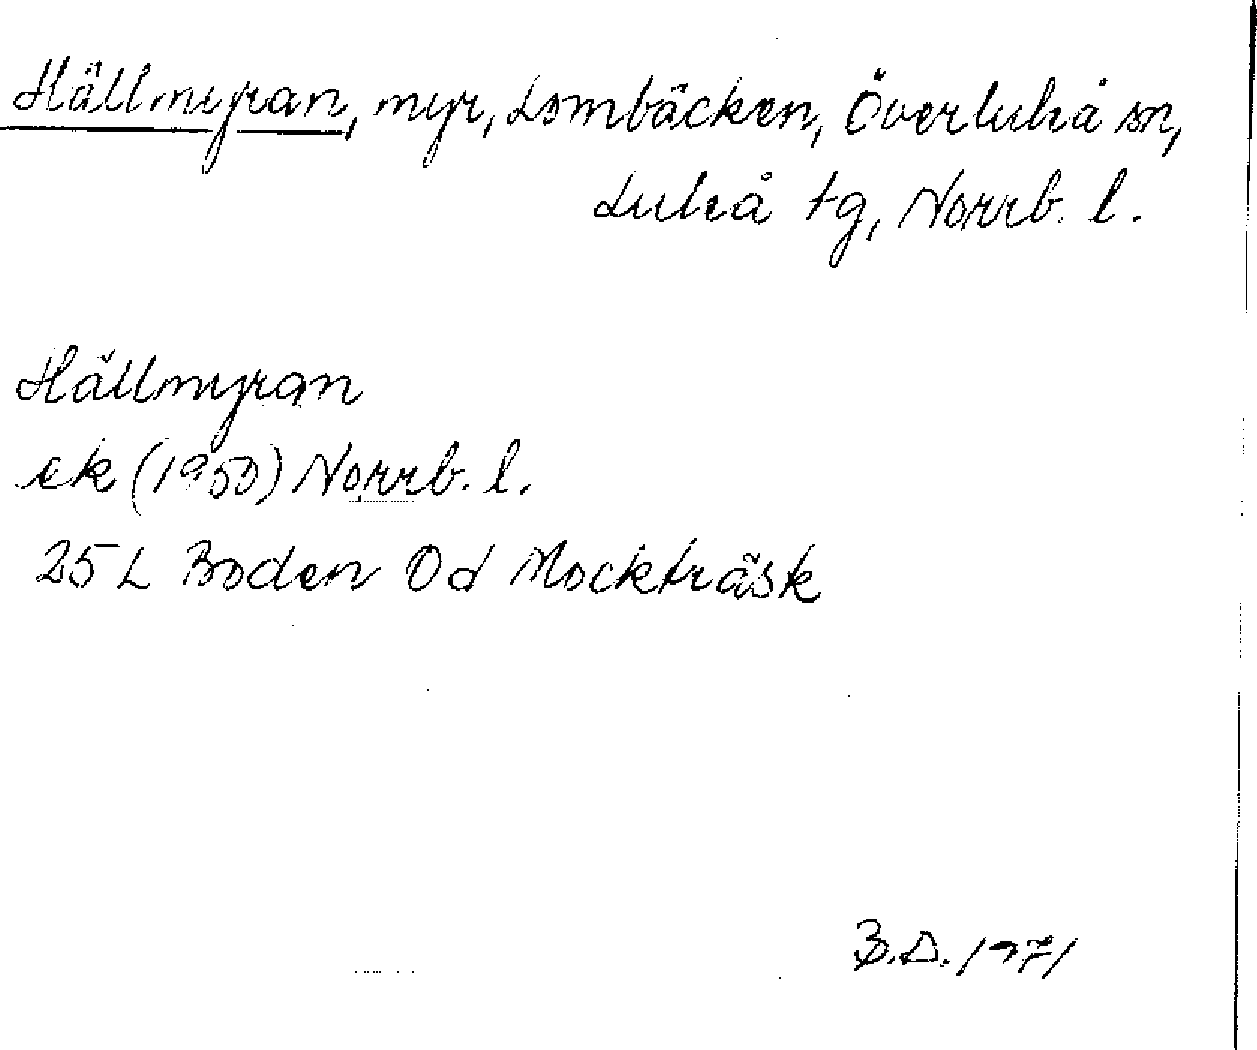 Hällmyran, myr, Lombäcken, Överluleå sn,
Luleå tg, Norrb. l.
Hällmyran
ek (1950) Norrb. l.
25 L Boden 0d Mockträsk
B.D. 1971